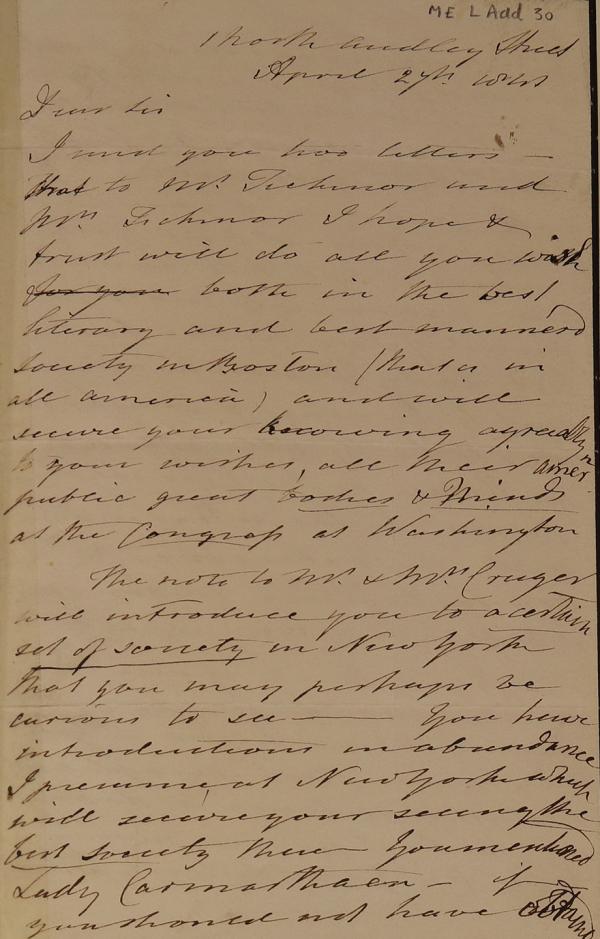 ME L Add 30
1 North Audley Street
April 27th 1841
Dear Sir
I send you two letters —
that to Mr. Ticknor and
Mrs Ticknor I hope &
trust will do all you wish
for you both in the best
literary and best manner'd
society in Boston (that is in
all America) and will
secure your knowing agreeably
to your wishes, all their Amer
public great bodies & Friends
at the Congress at Washington
The note to Mr. & Mrs Cruger
will introduce you to a certain
set of society in New York
that you may perhaps be
curious to see — You have
introductions in abundance
I presume at New York which
will secure your seeing the
best society there — You mentioned
Lady Carmarthaen — if
you should not have